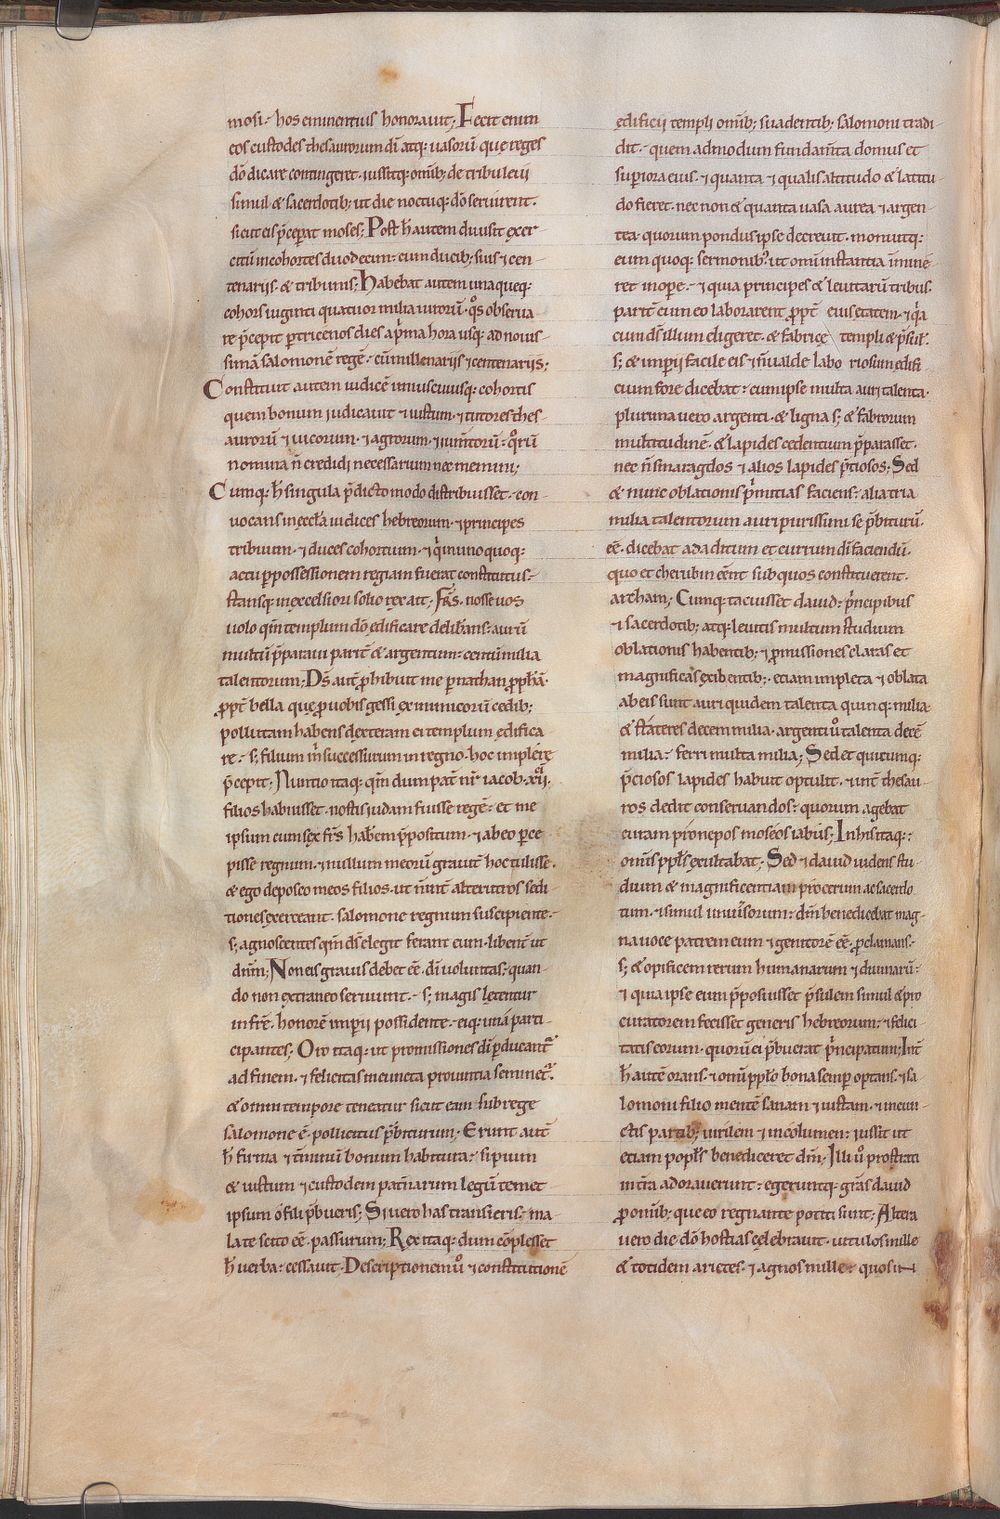 mosi · hos eminentius honorauit; Fecit enim
eos custodes thesaurorum dī atq; uasorū quę reges
dō dicare contingeret · iussitq; omīb; de tribu leui
simul & sacerdotib; ut die noctuq; dō seruirent ·
sicut eis p̄ceperat moses; Post h̄ autem diuisit exer
citū in cohortes duodecim · cum ducib; suis ⁊ cen-
tenarijs · & tribunis; Habebat autem unaqueq;
cohors uiginti quatuor milia uirorū · q̊s obserua
re p̄cepit p tricenos dies a p̄ma hora usq; ad nouis-
simā salomonē regē · cū millenarijs ⁊ centenarijs;
Constituit autem iudicē uniuscuiusq; cohortis
quem bonum iudicauit ⁊ iustum · ⁊ tutores thes
aurorū ⁊ uicorum · ⁊ agrorum · ⁊ iumtorū · q̊rū
nomina n̄ credidi necessarium nec memini;
Cumq; h̄ singula p̄dicto modo distribuisset · con-
uocans in ęcclā iudices hebreorum · ⁊ principes
tribuum · ⁊ duces cohortium · ⁊ q̇ in uno quoq;
actu p possessionem regiam fuerat constitutus ·
stansq; in excelsiori solio rex ait · Frs̄ · nosse uos
uolo qm̄ templum dō ędificare delibans · aurū
multū p̄paraui parit̄ & argentum · centū milia
talentorum; Ds̄ aut̄ p̱hibuit me p nathan ppħā ·
ppt̄ bella quę p uobis gessi ex inimicorū cedib;
pollutam habens dexteram ei templum edifica
re · s; filium m̄ successurum in regno · hoc implere
p̄cepit; Nuntio itaq; qm̄ dum pat̄ nr̄ iacob · xii ·
filios habuisset · nostis iudam fuisse regē · et me
ipsum cum sex fr̄s habēm p̄positum · ⁊ ab eo perce
pisse regnum · ⁊ nullum meorū grauit̄ hoc tulisse ·
& ego deposco meos filios · ut n̄unt alterutros sedi
tiones exerceant · salomone regnum suscipiente ·
s; agnoscentes qm̄ ds̄ elegit ferant eum · libent̄ ut
dnm̄; Non eis grauis debet eē · dī uoluntas · quan-
do non extraneo seruiunt · s; magis letentur
in fr̄e · honorē imperii possidente · eiq; unā parti-
cipantes; Oro itaq; ut promissiones dī pducant̄
ad finem · ⁊ felicitas in cuncta prouintia seminet̄ ·
& omni tempore teneatur sicut eam sub rege
salomone ē · pollicitus p̄biturum · Erunt aut̄
h̄ firma ⁊ c̄munū bonum habitura · si pium
& iustum ⁊ custodem patriarum legū temet
ipsum o fili p̄bueris; Si uero has transieris · ma-
la te scito eē · passurum; Rex itaq; dum cōplesset
h̄ uerba · cessauit · Descriptionem ů ⁊ constitutionē
ędificii templi omīb; suadentib; salomoni tradi
dit · quem admodum fundam̄ta domus et
supiora eius · ⁊ quanta ⁊ qualis altitudo & latitu-
do fieret · nec non & quanta uasa aurea ⁊ argen-
tea · quorum pondus ipse decreuit · monuitq;
eum quoq; sermonib; ut omī instantia īmine
ret in ope · ⁊ quia principes & leuitarū tribus ·
parit̄ cum eo laborarent ppt̄ eius etatem · ⁊ q̇a
eum ds̄ illum eligeret · & fabrice templi & p̄sul ·
s; & imperii facile eis ⁊ n̄ ualde labo riosum edifi
cium fore dicebat · cum ipse multa auri talenta ·
plurima uero argenti · & ligna s; & fabrorum
multitudinē · & lapides cedentium p̄parasset ·
nec n̄ smaragdos ⁊ alios lapides p̄ciosos; Sed
& nunc oblationis p̄mitias faciens · alia tria
milia talentorum auri purissimi se p̄biturū ·
eē · dicebat ad aditum et currum dī faciendū ·
quo et cherubin eēnt sub quos constituerent ·
archam; Cumq; tacuisset dauid · p̄ncipibus
⁊ sacerdotib; atq; leuitis multum studium
oblationis habentib; ⁊ pmissiones claras et
magnificas exibentib; · etiam impleta ⁊ oblata
ab eis sunt auri quidem talenta quinq; milia ·
& stateres decem milia · argenti ů talenta decē
milia · ferri multa milia; Sed et quicumq;
p̄ciosos lapides habuit optulit · ⁊ int̄ thesau-
ros dedit conseruandos · quorum agebat
curam pronepos moseos iabiis; In his itaq;
omīs pplś exultabat; Sed ⁊ dauid uidens stu-
dium & magnificentiam procerum ac sacerdo
tum · ⁊ simul uniuersorum · dm̄ benedicebat mag-
na uoce patrem eum ⁊ genitorē eē · pclamans ·
s; & opificem rerum humanarum ⁊ diuinarū ·
⁊ quia ipse eum p̄posuisset p̄sulem simul & pro
curatorem fecisset generis hebreorum · ⁊ felici
tatis eorum · quorū ei p̄buerat p̄ncipatum; Int̄
h̄ autē orans · ⁊ omī pplo bona semp optans · ⁊ sa
lomoni filio mentē sanam ⁊ iustam · ⁊ incun-
ctis partib; uirilem ⁊ incolumen · iussit ut
etiam poplś benediceret dm̄; Illi ů prostrati
in t̄ra adorauerunt · egeruntq; gr̄as dauid
p omīb; que eo regnante potiti sunt; Altera
uero die dō hostias celebrauit · uitulos mille
& totidem arietes · ⁊ agnos mille · quos in